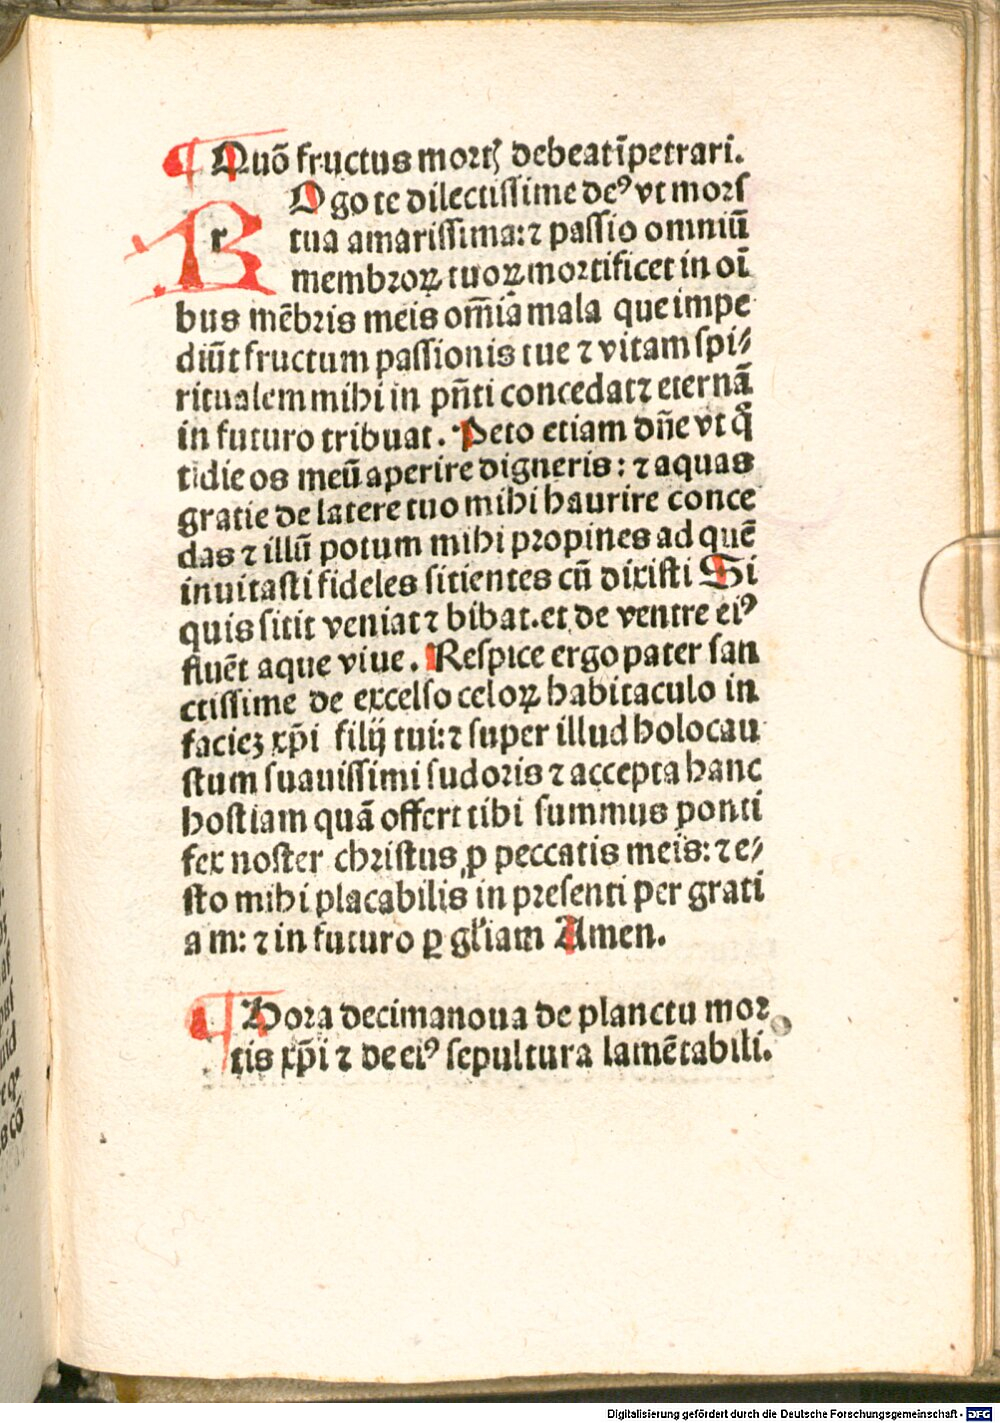 ¶ Quō fructus mortꝭ debeat īpetrari.
ROgo te dilectissime deꝰ vt mors
tua amarissima: ⁊ passio omniū
membroꝝ tuoꝝ mortificet in oī
bus mēbris meis om̄ia mala que impe
diūt fructum passionis tue ⁊ vitam spi⸗
ritualem mihi in pn̄ti concedat ⁊ eternā
in futuro tribuat. Peto etiam dn̄e vt q̄
tidie os meū aperire digneris: ⁊ aquas
gratie de latere tuo mihi haurire conce
das ⁊ illū potum mihi propines ad quē
inuitasti fideles sitientes cū dixisti Si
quis sitit veniat ⁊ bibat. et de ventre eiꝰ
fluēt aque viue. Respice ergo pater san
ctissime de excelso celoꝝ habitaculo in
faciez xp̄i filij tui: ⁊ super illud holocau
stum suauissimi sudoris ⁊ accepta hanc
hostiam quā offert tibi summus ponti
fex noster christus ꝓ peccatis meis: ⁊ e⸗
sto mihi placabilis in presenti per grati
am: ⁊ in futuro ꝑ gl̄iam Amen.
¶ Hora decimanoua de planctu mor
tis xp̄i ⁊ de eiꝰ sepultura lamētabili.
Digitalisierung gefördert durch die Deutsche Forschungsgemeinschaft - DFG